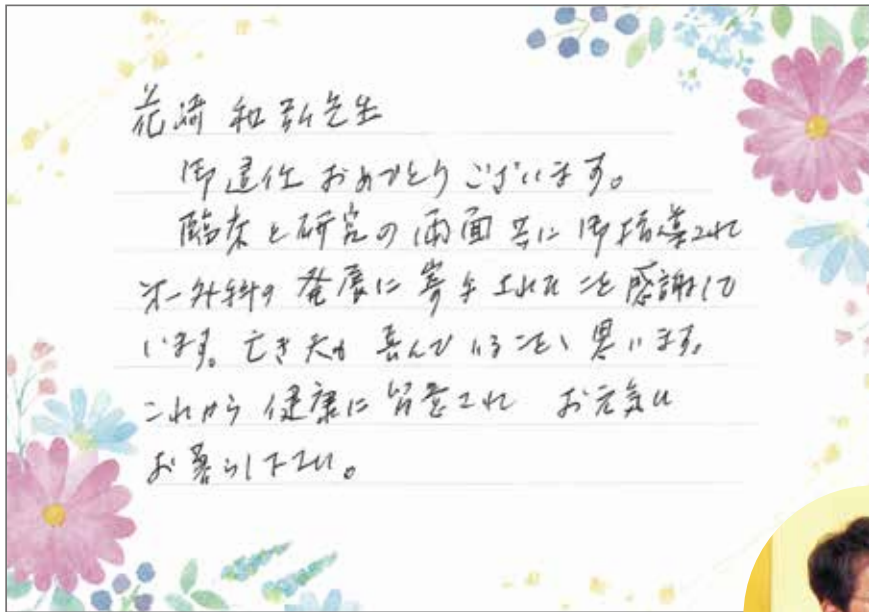 花崎和弘先生
御退任おめでとうございます。
臨床と研究の両面共に御指導され
第一外科の発展に寄与されたことを感謝して
います。亡き夫も喜んでいることと思います。
これから健康に留意され お元気に
お暮らし下さい。